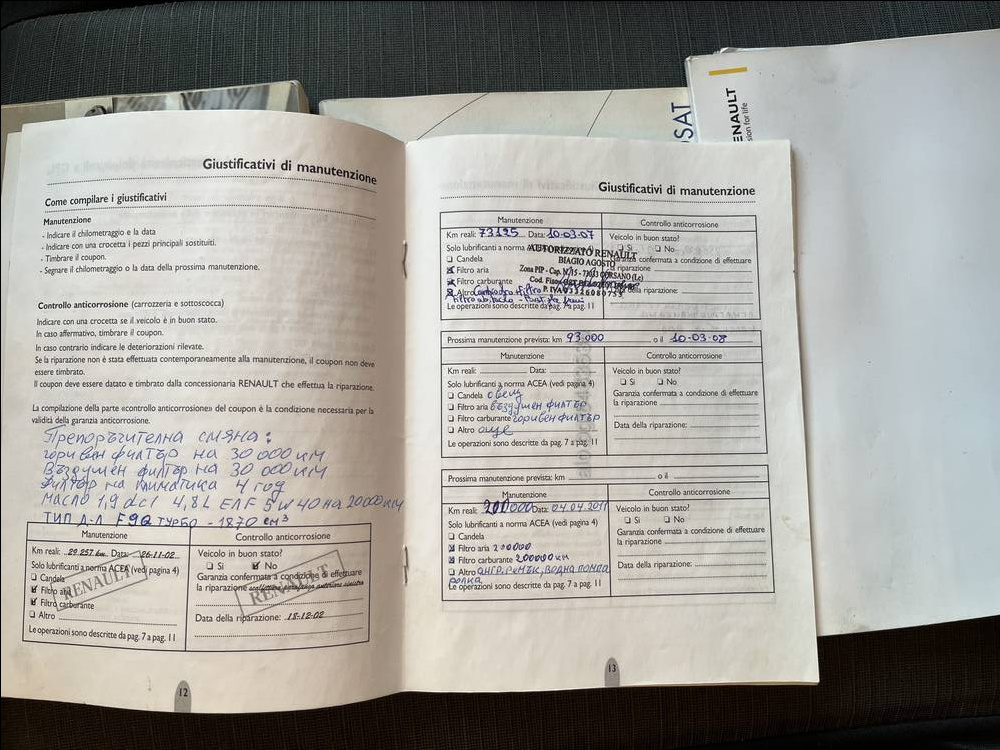 Giustificativi di manutenzione
Come compilare i giustificativi
Manutenzione
- Indicare il chilometraggio e la data
- Indicare con una crocetta i pezzi principali sostituiti.
- Timbrare il coupon.
- Segnare il chilometraggio o la data della prossima manutenzione.
Controllo anticorrosione (carrozzeria e sottoscocca)
Indicare con una crocetta se il veicolo è in buon stato.
In caso affermativo, timbrare il coupon.
In caso contrario indicare le deteriorazioni rilevate.
Se la riparazione non è stata effettuata contemporaneamente alla manutenzione, il coupon non deve
essere timbrato.
Il coupon deve essere datato e timbrato dalla concessionaria RENAULT che effettua la riparazione.
La compilazione della parte «controllo anticorrosione» del coupon è la condizione necessaria per la
validità della garanzia anticorrosione.
Препоръчителна смяна:
горивен филтър на 30 000 км
Въздушен филтър на 30 000 км
филтър на климатика 4 год
масло 1,9 dci 4,8 L ELF 5W40 на 20000 км
ТИП Д-Л F9Q ТУРБО - 1870 см³
Manutenzione
Controllo anticorrosione
Km reali: 29.257 km Data: 26-11-02
Solo lubrificanti a norma ACEA (vedi pagina 4)
Candela
Filtro aria
Filtro carburante
Altro
Le operazioni sono descritte da pag. 7 a pag. 11
Veicolo in buon stato?
Si No
Garanzia confermata a condizione di effettuare
la riparazione
Data della riparazione: 18-12-02
RENAULT
RENAULT
12
Giustificativi di manutenzione
Manutenzione
Controllo anticorrosione
Km reali: 73125 Data: 10-03-07
Solo lubrificanti a norma
Candela
Filtro aria
Filtro carburante
Altro
Le operazioni sono descritte da pag. 7 a pag. 11
AUTORIZZATO RENAULT
BIAGIO AGOSTO
Zona PIP - Cap. N. 15 - 73013 CORSANO (Le)
Veicolo in buon stato?
Si No
Garanzia confermata a condizione di effettuare
la riparazione
Data della riparazione:
Prossima manutenzione prevista: km 93000 o il 10-03-08
Manutenzione
Controllo anticorrosione
Km reali: Data:
Solo lubrificanti a norma ACEA (vedi pagina 4)
Candela свещ
Filtro aria въздушен филтър
Filtro carburante горивен филтър
Altro още
Le operazioni sono descritte da pag. 7 a pag. 11
Veicolo in buon stato?
Si No
Garanzia confermata a condizione di effettuare
la riparazione
Data della riparazione:
Prossima manutenzione prevista: km o il
Manutenzione
Controllo anticorrosione
Km reali: 200000 Data: 04.04.2011
Solo lubrificanti a norma ACEA (vedi pagina 4)
Candela
Filtro aria 200000
Filtro carburante 200000 км
Altro АНГР. РЕМЪК, ВОДНА ПОМПА
РОЛКА
Le operazioni sono descritte da pag. 7 a pag. 11
Veicolo in buon stato?
Si No
Garanzia confermata a condizione di effettuare
la riparazione
Data della riparazione:
13